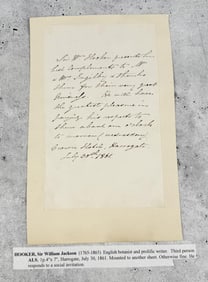 Sir Wm Hooker presents him
his compliments to Mr
& Mrs Ingilby & thanks
them for their very great
kindness. He will have
the greatest pleasure in
paying his respects to
them about six o'clock
tomorrow, wednesday
Crown Hotel, Harrogate
July 30th 1861
HOOKER, Sir William Jackson (1785-1865) English botanist and prolific writer. Third person
ALS, 1p 4" x 7", Harrogate, July 30, 1861. Mounted to another sheet. Otherwise fine. He
responds to a social invitation.